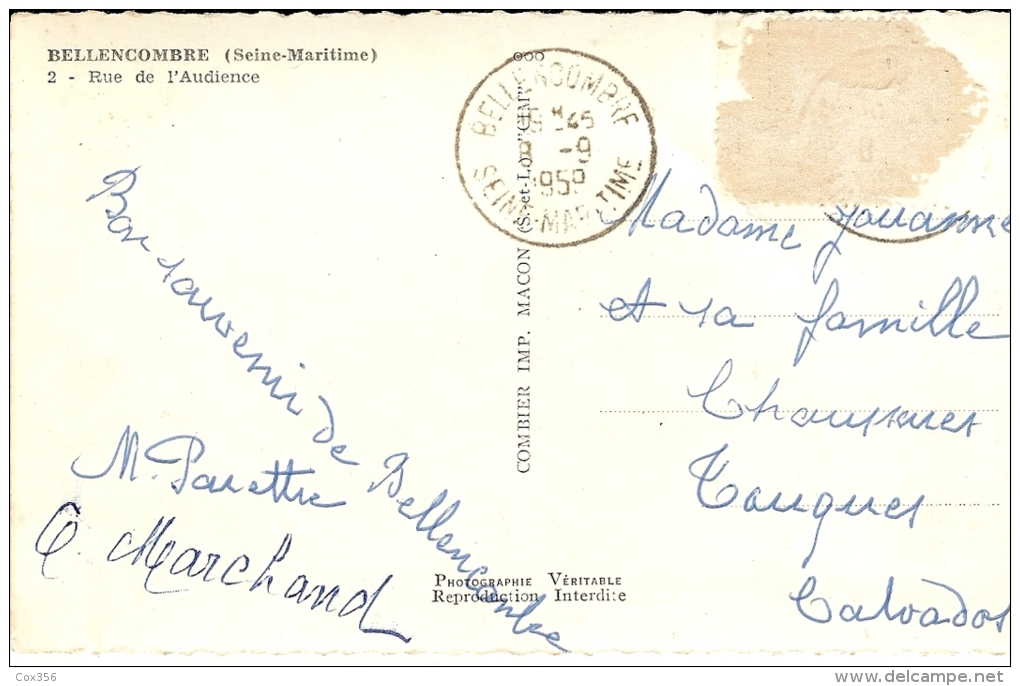 BELLENCOMBRE (Seine-Maritime)
2 - Rue de l'Audience
BELLENCOMBRE
8 -9
1959
SEINE-MARITIME
COMBIER IMP. MACON (S.-et-L.) "CIM"
Bon souvenir de Bellencombre
M.
Marchand
Madame Jouanne
et sa famille
Touques
Calvados
PHOTOGRAPHIE VÉRITABLE
Reproduction Interdite
Cox356
delcampe.net